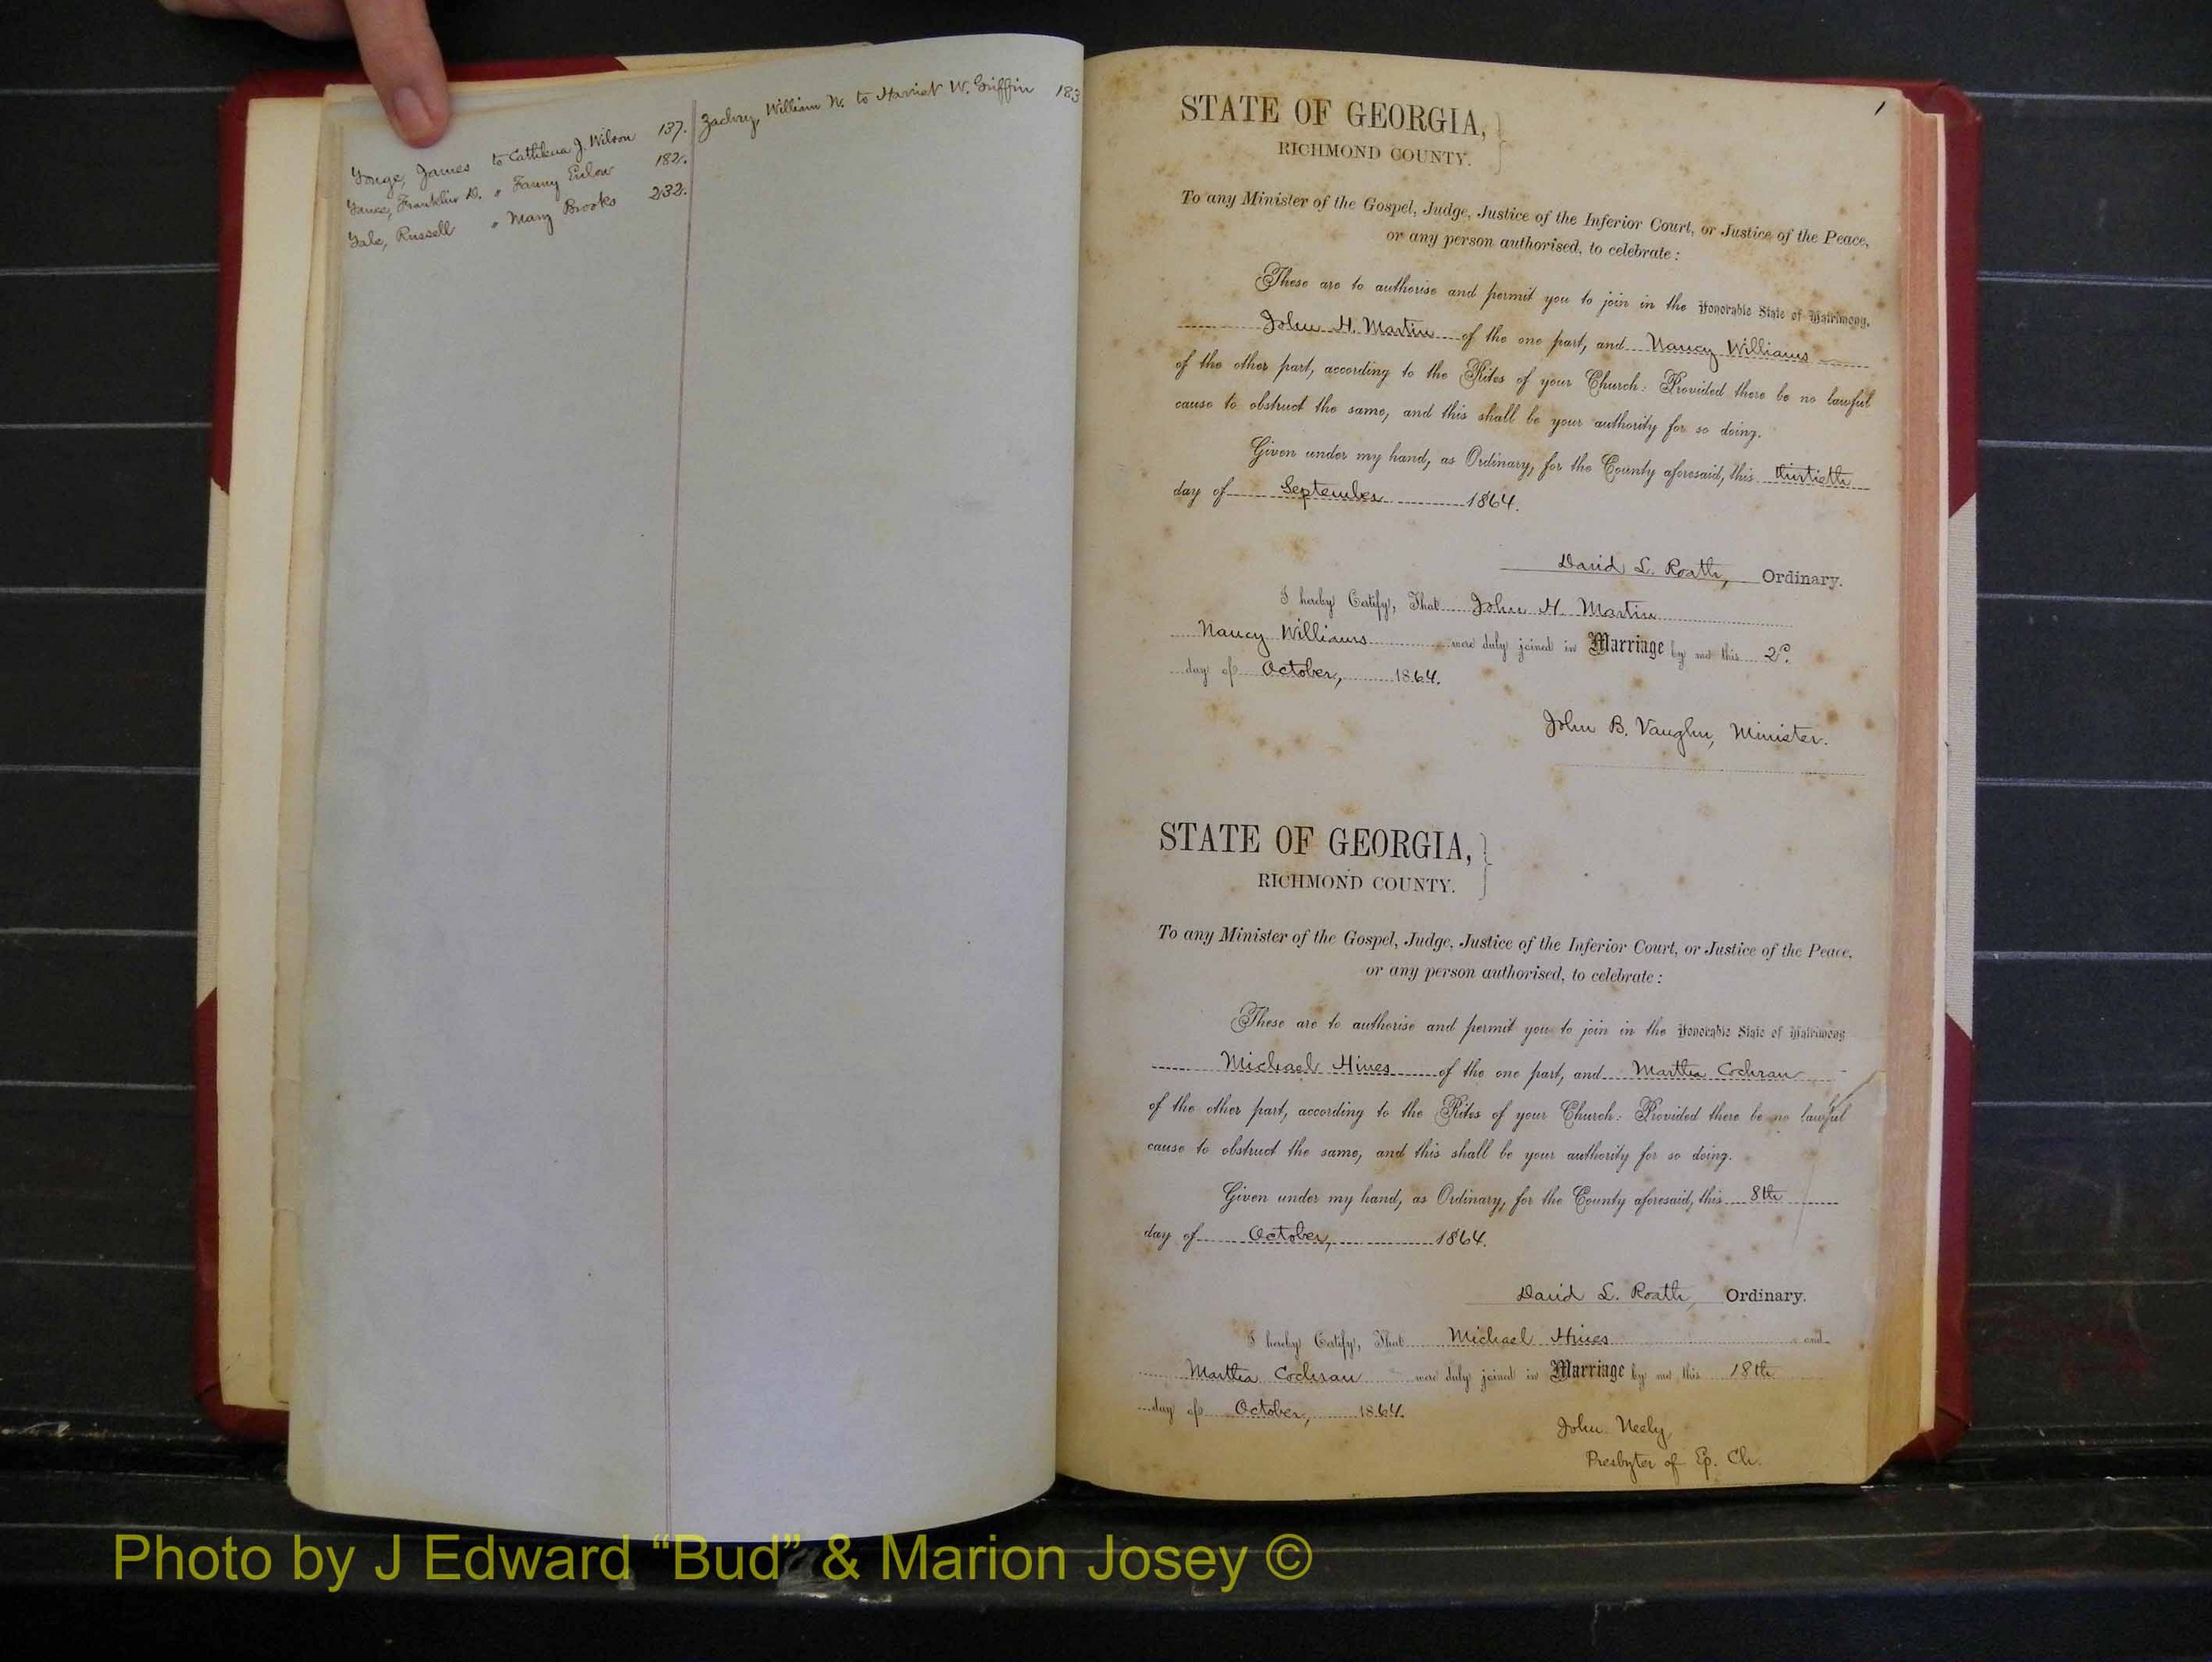 Yonge, James to Cathleua J. Wilson 137.
Yance, Franklin D. " Fanny Enlow 182.
Yale, Russell " Mary Brooks 232.
Zachry, William W. to Harriet W. Griffin 183
1
STATE OF GEORGIA,
RICHMOND COUNTY.
To any Minister of the Gospel, Judge, Justice of the Inferior Court, or Justice of the Peace,
or any person authorised, to celebrate:
These are to authorise and permit you to join in the Honorable State of Matrimony,
John H. Martin of the one part, and Nancy Williams
of the other part, according to the Rites of your Church: Provided there be no lawful
cause to obstruct the same, and this shall be your authority for so doing.
Given under my hand, as Ordinary, for the County aforesaid, this thirtieth
day of September 1864.
David L. Roath, Ordinary.
I hereby Certify, That John H. Martin
Nancy Williams were duly joined in Marriage by me this 2d.
day of October, 1864.
John B. Vaughn, Minister.
STATE OF GEORGIA,
RICHMOND COUNTY.
To any Minister of the Gospel, Judge, Justice of the Inferior Court, or Justice of the Peace,
or any person authorised, to celebrate:
These are to authorise and permit you to join in the Honorable State of Matrimony
Michael Hines of the one part, and Martha Cochran
of the other part, according to the Rites of your Church: Provided there be no lawful
cause to obstruct the same, and this shall be your authority for so doing.
Given under my hand, as Ordinary, for the County aforesaid, this 8th
day of October, 1864.
David L. Roath, Ordinary.
I hereby Certify, That Michael Hines and
Martha Cochran were duly joined in Marriage by me this 18th
day of October, 1864.
John Neely,
Presbyter of Ep. Ch.
Photo by J Edward “Bud” & Marion Josey ©